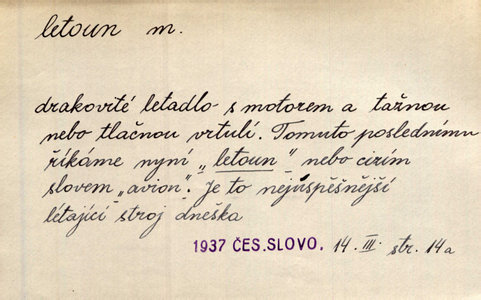 letoun m.
drakovité letadlo s motorem a tažnou
nebo tlačnou vrtulí. Tomuto poslednímu
říkáme nyní „letoun" nebo cizím
slovem „avion". Je to nejúspěšnější
létající stroj dneška
1937 ČES.SLOVO. 14. III. str. 14a